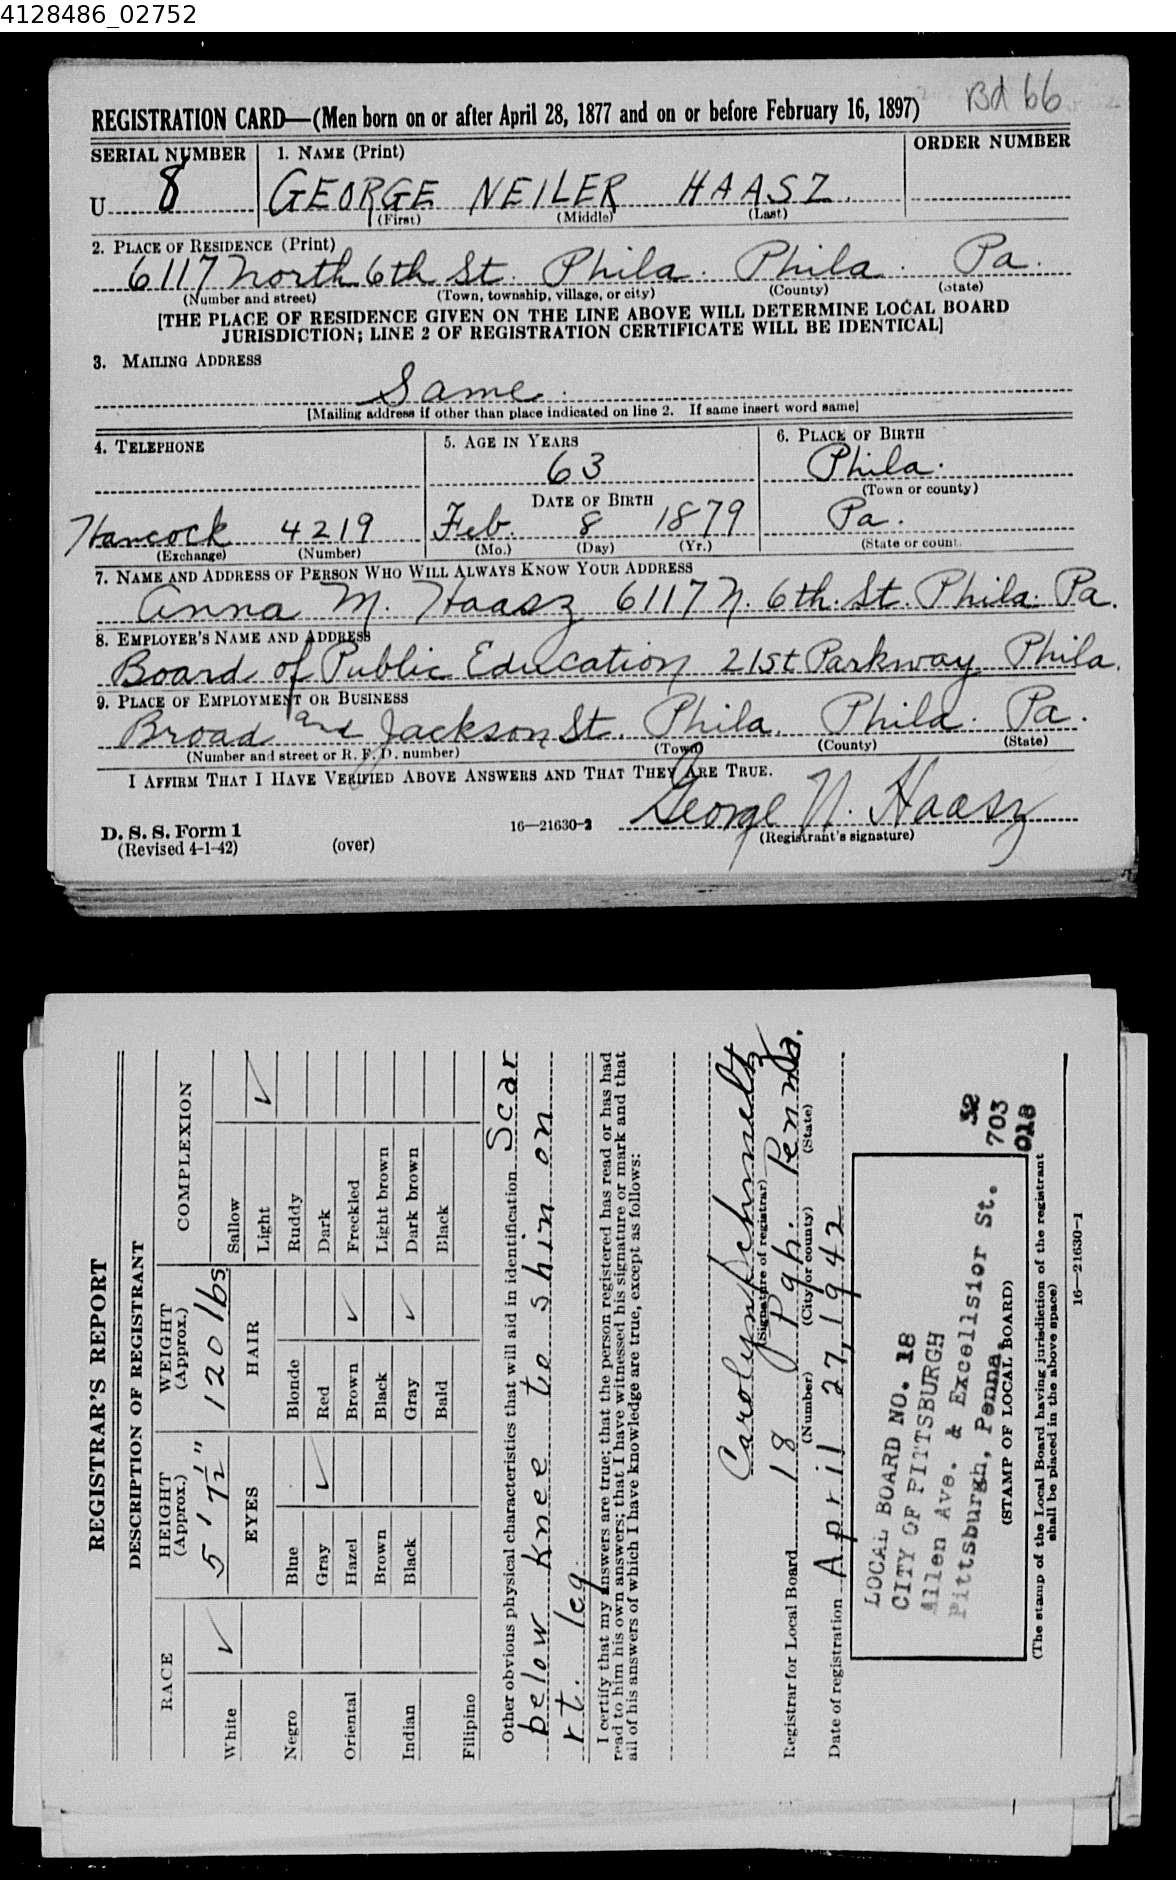 4128486_02752
Bd 66
REGISTRATION CARD—(Men born on or after April 28, 1877 and on or before February 16, 1897)
SERIAL NUMBER 1. NAME (Print) ORDER NUMBER
U 8 GEORGE NEILER HAASZ
(First) (Middle) (Last)
2. PLACE OF RESIDENCE (Print)
6117 North 6th St. Phila. Phila. Pa.
(Number and street) (Town, township, village, or city) (County) (State)
[THE PLACE OF RESIDENCE GIVEN ON THE LINE ABOVE WILL DETERMINE LOCAL BOARD
JURISDICTION; LINE 2 OF REGISTRATION CERTIFICATE WILL BE IDENTICAL]
3. MAILING ADDRESS
Same.
[Mailing address if other than place indicated on line 2. If same insert word same]
4. TELEPHONE 5. AGE IN YEARS 6. PLACE OF BIRTH
63 Phila.
DATE OF BIRTH (Town or county)
Hancock 4219 Feb. 8 1879 Pa.
(Exchange) (Number) (Mo.) (Day) (Yr.) (State or count
7. NAME AND ADDRESS OF PERSON WHO WILL ALWAYS KNOW YOUR ADDRESS
Anna M. Haasz 6117 N. 6th. St. Phila. Pa.
8. EMPLOYER'S NAME AND ADDRESS
Board of Public Education 21st Parkway Phila.
9. PLACE OF EMPLOYMENT OR BUSINESS
Broad and Jackson St. Phila. Phila. Pa.
(Number and street or R. F. D. number) (Town) (County) (State)
I AFFIRM THAT I HAVE VERIFIED ABOVE ANSWERS AND THAT THEY ARE TRUE.
George N. Haasz
D. S. S. Form 1 16—21630-2 (Registrant's signature)
(Revised 4-1-42) (over)
REGISTRAR'S REPORT
DESCRIPTION OF REGISTRANT
RACE HEIGHT (Approx.) WEIGHT (Approx.) COMPLEXION
White ✓ 5' 7½" 120 lbs. Sallow
EYES HAIR Light ✓
Negro Blue Blonde Ruddy
Gray ✓ Red Dark
Oriental Hazel Brown ✓ Freckled
Brown Black Light brown
Indian Black Gray ✓ Dark brown
Bald Black
Filipino
Other obvious physical characteristics that will aid in identification Scar
below knee to shin on
rt. leg.
I certify that my answers are true; that the person registered has read or has had
read to him his own answers; that I have witnessed his signature or mark and that
all of his answers of which I have knowledge are true, except as follows:
Carolyn Schmeltz
(Signature of registrar)
Registrar for Local Board 18 Pgh. Penna.
(Number) (City or county) (State)
Date of registration April 27, 1942
LOCAL BOARD NO. 18
CITY OF PITTSBURGH
Allen Ave. & Excellsior St.
Pittsburgh, Penna.
32
703
018
(STAMP OF LOCAL BOARD)
(The stamp of the Local Board having jurisdiction of the registrant
shall be placed in the above space)
16—21630-1